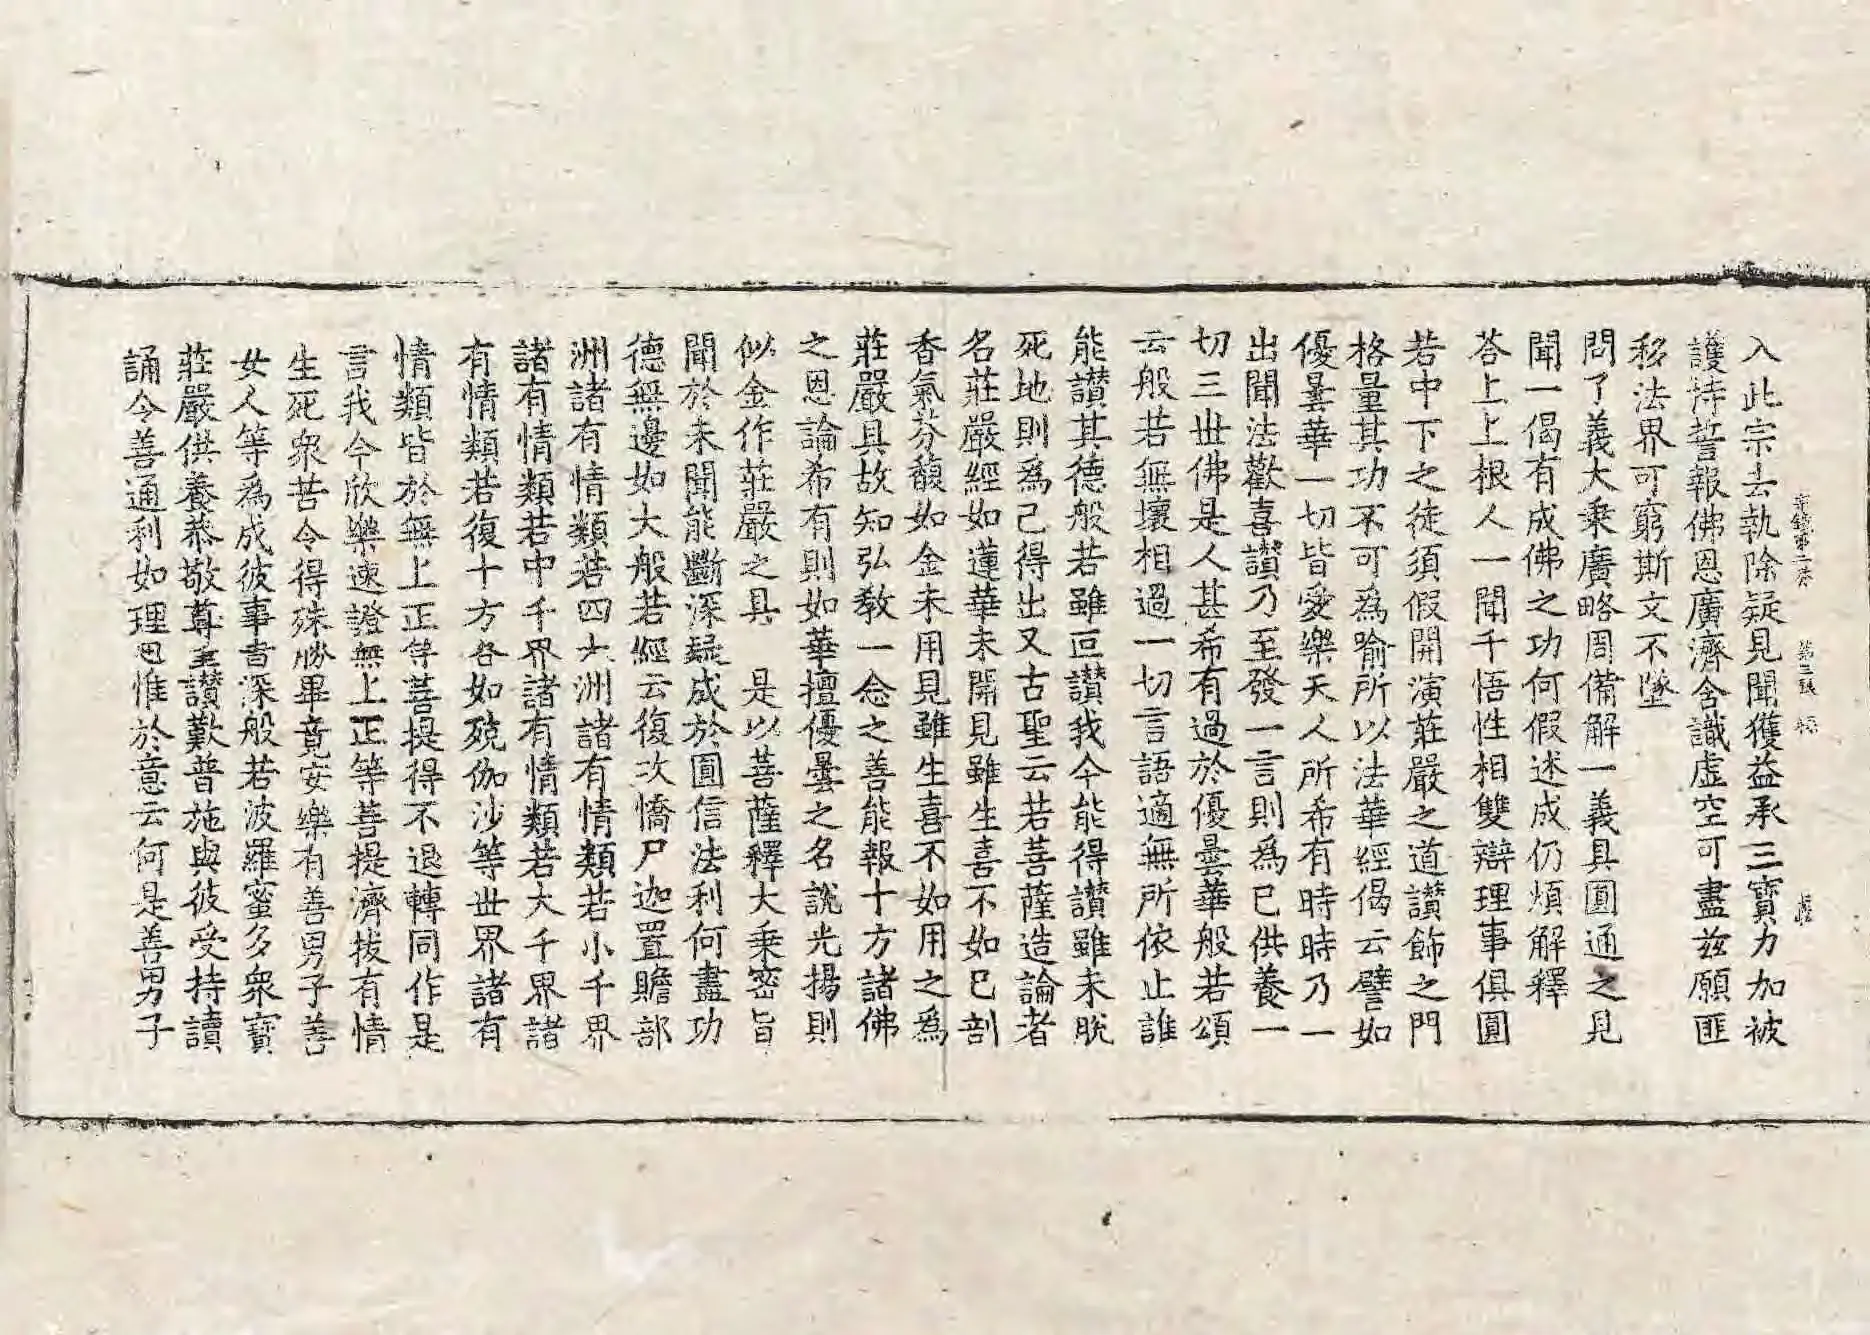 入此宗去執除疑見聞獲益承三寶力加被
護持誓報佛恩廣濟含識虛空可盡茲願匪
移法界可窮斯文不墜
問了義大乘廣略周備解一義具圓通之見
聞一偈有成佛之功何假述成仍煩解釋
荅上上根人一聞千悟性相雙辯理事俱圓
若中下之徒須假開演莊嚴之道讚飾之門
格量其功不可為喻所以法華經偈云譬如
優曇華一切皆愛樂天人所希有時時乃一
出聞法歡喜讚乃至發一言則為已供養一
切三世佛是人甚希有過於優曇華般若頌
云般若無壞相過一切言語適無所依止誰
能讚其德般若雖叵讚我今能得讚雖未脫
死地則為已得出又古聖云若菩薩造論者
名莊嚴經如蓮華未開見雖生喜不如已剖
香氣芬馥如金未用見雖生喜不如用之為
莊嚴具故知弘教一念之善能報十方諸佛
之恩論希有則如華擅優曇之名說光揚則
似金作莊嚴之具 是以菩薩釋大乘密旨
聞於未聞能斷深疑成於圓信法利何盡功
德無邊如大般若經云復次憍尸迦置贍部
洲諸有情類若四大洲諸有情類若小千界
諸有情類若中千界諸有情類若大千界諸
有情類若復十方各如殑伽沙等世界諸有
情類皆於無上正等菩提得不退轉同作是
言我今欣樂速證無上正等菩提濟拔有情
生死眾苦令得殊勝畢竟安樂有善男子善
女人等為成彼事書深般若波羅蜜多眾寶
莊嚴供養恭敬尊重讚歎普施與彼受持讀
誦令善通利如理思惟於意云何是善男子